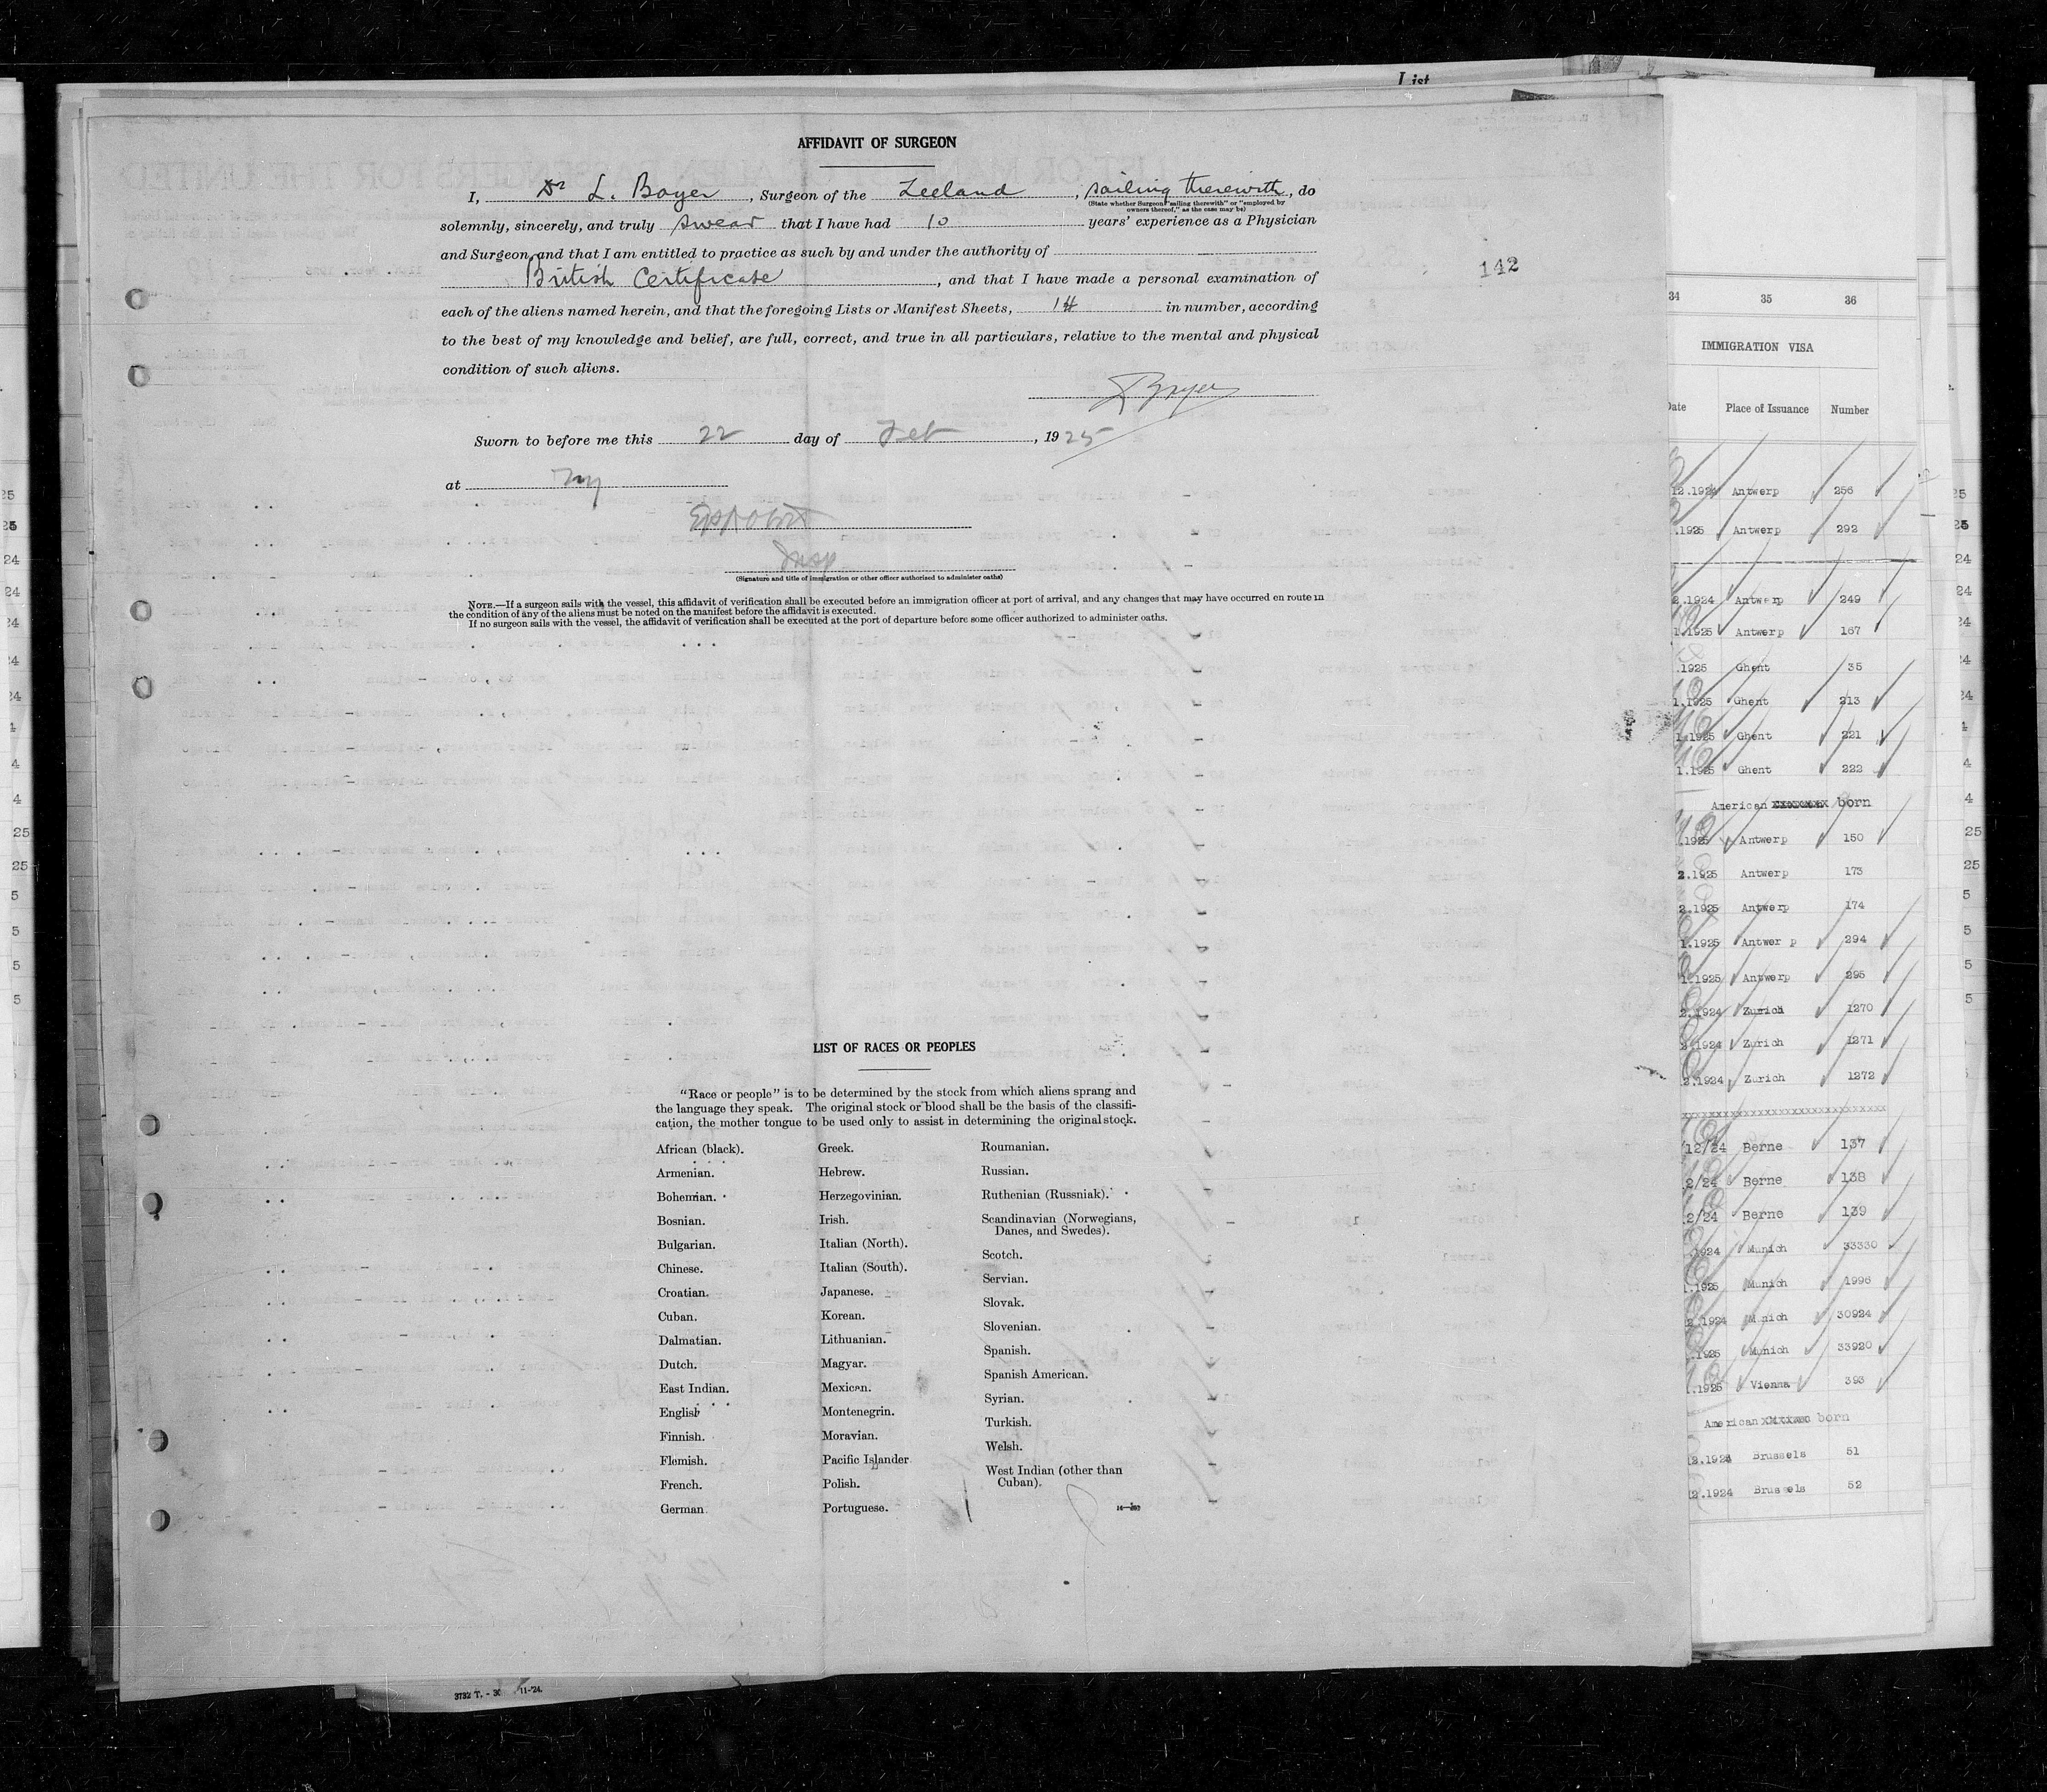 List
AFFIDAVIT OF SURGEON
I, Dr L. Boyer, Surgeon of the Zeeland, sailing therewith, do
(State whether Surgeon "sailing therewith" or "employed by
owners thereof," as the case may be)
solemnly, sincerely, and truly swear that I have had 10 years' experience as a Physician
and Surgeon, and that I am entitled to practice as such by and under the authority of
British Certificate, and that I have made a personal examination of
each of the aliens named herein, and that the foregoing Lists or Manifest Sheets, 14 in number, according
to the best of my knowledge and belief, are full, correct, and true in all particulars, relative to the mental and physical
condition of such aliens.
L Boyer
Sworn to before me this 22 day of Feb, 1925
at NY
Insp
(Signature and title of immigration or other officer authorized to administer oaths)
NOTE.—If a surgeon sails with the vessel, this affidavit of verification shall be executed before an immigration officer at port of arrival, and any changes that may have occurred en route in
the condition of any of the aliens must be noted on the manifest before the affidavit is executed.
If no surgeon sails with the vessel, the affidavit of verification shall be executed at the port of departure before some officer authorized to administer oaths.
142
LIST OF RACES OR PEOPLES
"Race or people" is to be determined by the stock from which aliens sprang and
the language they speak. The original stock or blood shall be the basis of the classifi-
cation, the mother tongue to be used only to assist in determining the original stock.
African (black).
Armenian.
Bohemian.
Bosnian.
Bulgarian.
Chinese.
Croatian.
Cuban.
Dalmatian.
Dutch.
East Indian.
English
Finnish.
Flemish.
French.
German
Greek.
Hebrew.
Herzegovinian.
Irish.
Italian (North).
Italian (South).
Japanese.
Korean.
Lithuanian.
Magyar.
Mexican.
Montenegrin.
Moravian.
Pacific Islander
Polish.
Portuguese.
Roumanian.
Russian.
Ruthenian (Russniak).
Scandinavian (Norwegians,
Danes, and Swedes).
Scotch.
Servian.
Slovak.
Slovenian.
Spanish.
Spanish American.
Syrian.
Turkish.
Welsh.
West Indian (other than
Cuban).
3732 T. - 11-'24.
34 35 36
IMMIGRATION VISA
Date Place of Issuance Number
12.1924 Antwerp 256
.1925 Antwerp 292
2.1924 Antwerp 249
1.1925 Antwerp 167
.1925 Ghent 35
1.1925 Ghent 213
1.1925 Ghent 221
1.1925 Ghent 222
American born
.1925 Antwerp 150
2.1925 Antwerp 173
2.1925 Antwerp 174
1.1925 Antwer p 294
1.1925 Antwerp 295
2.1924 Zurich 1270
2.1924 Zurich 1271
2.1924 Zurich 1272
xxxxxxxxxxxxxxxxxxxxxxxxxxxxxx
12/24 Berne 137
2/24 Berne 138
2/24 Berne 139
.1924 Munich 33330
.1925 Munich 1996
2.1924 Munich 30924
.1925 Munich 33920
.1925 Vienna 393
American born
2.1924 Brussels 51
2.1924 Brussels 52